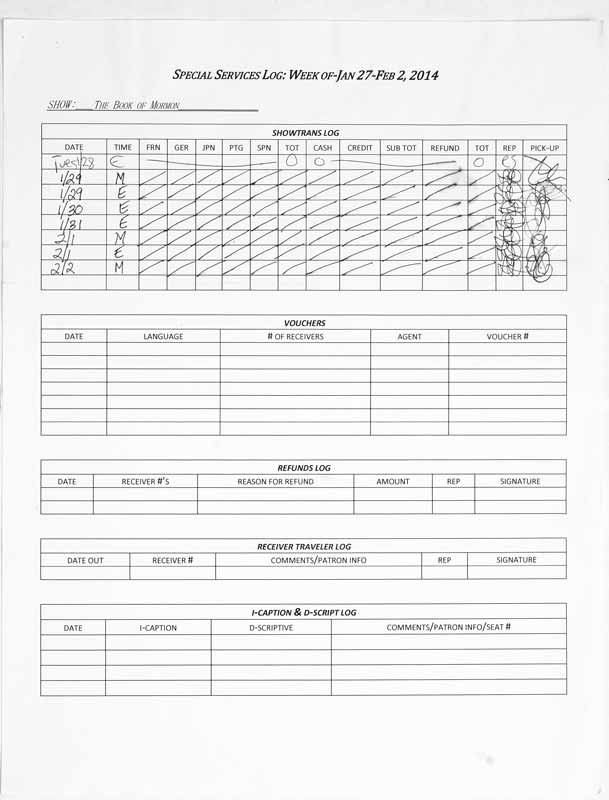 SPECIAL SERVICES LOG: WEEK OF-JAN 27-FEB 2, 2014
SHOW: THE BOOK OF MORMON
SHOWTRANS LOG
DATE TIME FRN GER JPN PTG SPN TOT CASH CREDIT SUB TOT REFUND TOT REP PICK-UP
Tues 1/28 E 0 0 0
1/29 M
1/29 E
1/30 E
1/31 E
2/1 M
2/1 E
2/2 M
VOUCHERS
DATE LANGUAGE # OF RECEIVERS AGENT VOUCHER #
REFUNDS LOG
DATE RECEIVER #'S REASON FOR REFUND AMOUNT REP SIGNATURE
RECEIVER TRAVELER LOG
DATE OUT RECEIVER # COMMENTS/PATRON INFO REP SIGNATURE
I-CAPTION & D-SCRIPT LOG
DATE I-CAPTION D-SCRIPTIVE COMMENTS/PATRON INFO/SEAT #